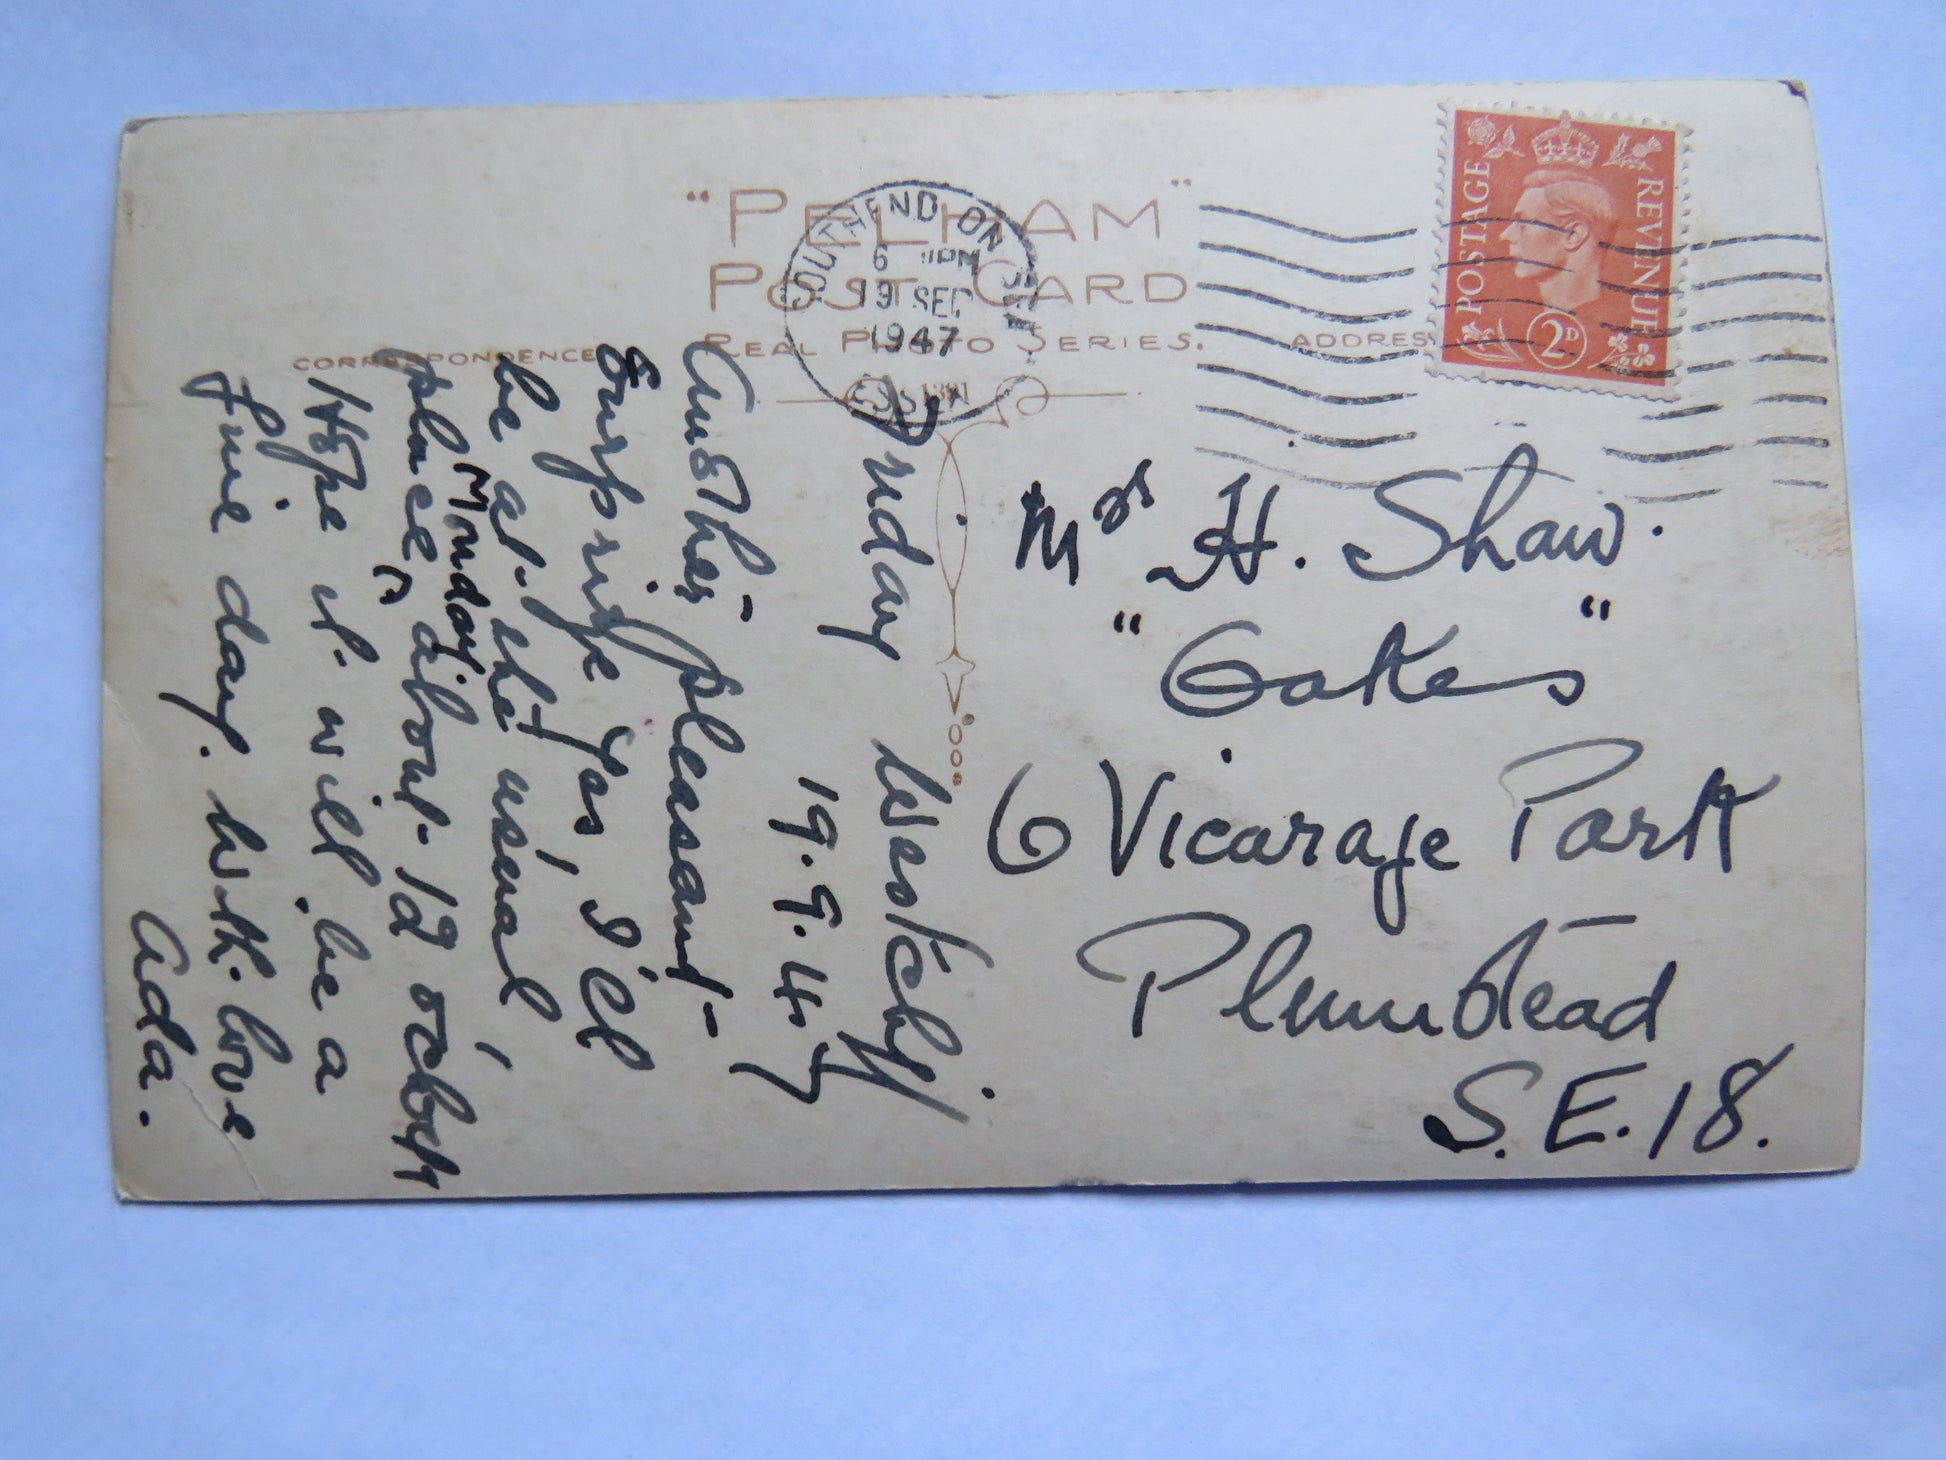 "PELHAM"
POST CARD
REAL PHOTO SERIES.
CORRESPONDENCE
ADDRESS
SOUTHEND ON SEA
6 PM
19 SEP
1947
POSTAGE
REVENUE
2D
Friday Westcliff.
19.9.47
Another pleasant
Surprise Yes, I'll
be at the usual
place, Monday about 12 o'clock
Hope it will be a
fine day. With love
Ada.
Mrs H. Shaw.
"Oakes"
6 Vicarage Park
Plumstead
S.E.18.